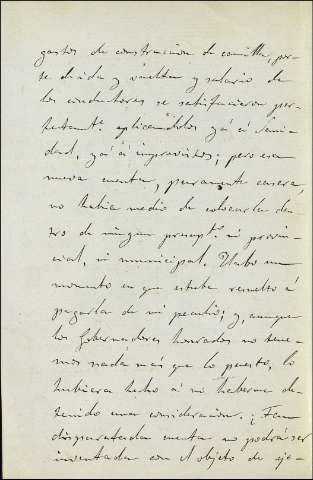 gastos de construccion de camilla, por-
te de ida y vuelta y salario de
los conductores se satisfacieron per-
fectamte. aplicandolos yá á Sani-
dad, yá á imprevistos; pero esa
nueva cuenta, puramente casera,
no habia medio de colocarla den-
tro de ningun presupto. ni provin-
cial, ni municipal. Hubo un
momento en que estube resuelto á
pagarla de mi peculio; y, aunque
los Gobernadores honrados no tene-
mos nada más que lo puesto, lo
hubiera hecho á no haberme de-
tenido una consideracion. ¿Tan
disparatada cuenta no podrá ser
inventada con el objeto de eje-